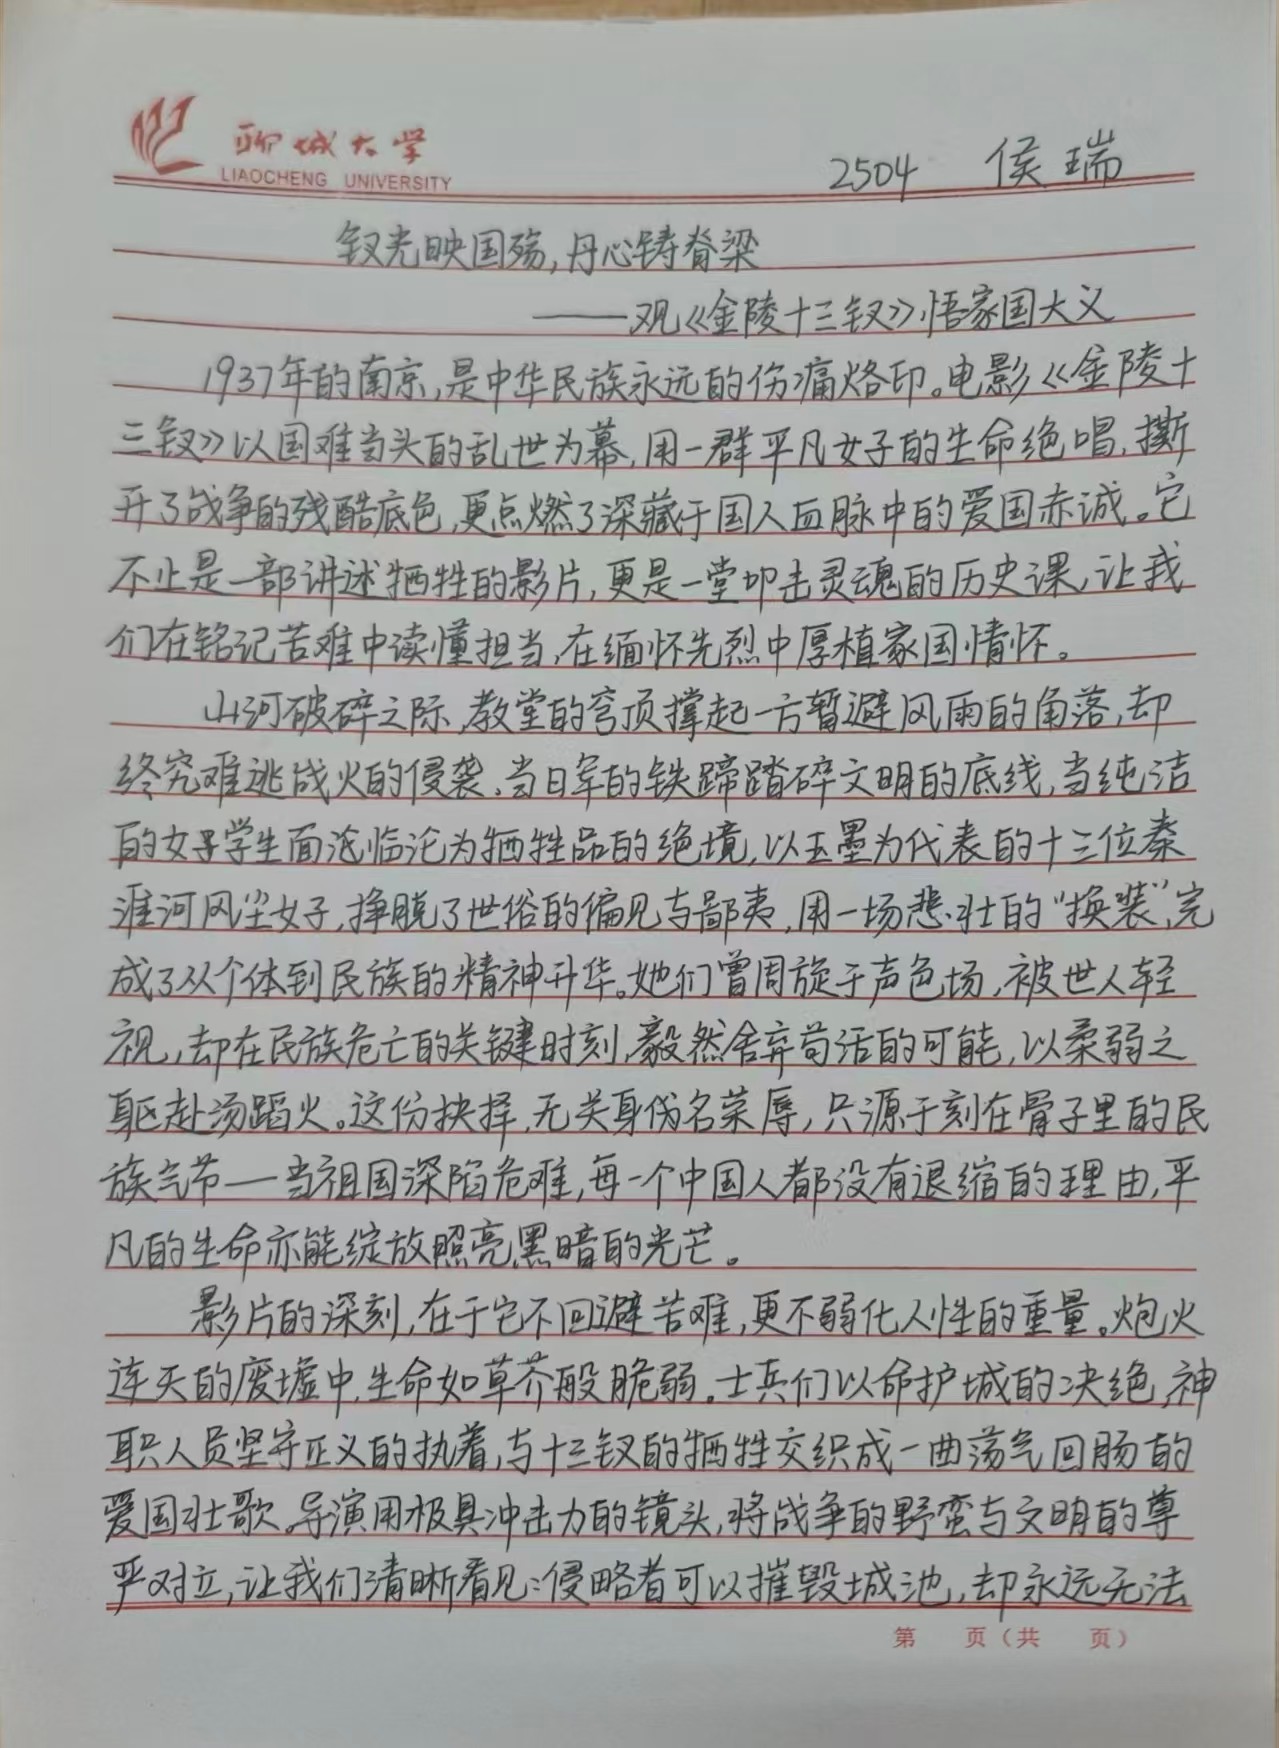 聊城大学
LIAOCHENG UNIVERSITY
2504 侯瑞
钗光映国殇,丹心铸脊梁
——观《金陵十三钗》悟家国大义
1937年的南京,是中华民族永远的伤痛烙印。电影《金陵十
三钗》以国难当头的乱世为幕,用一群平凡女子的生命绝唱,撕
开了战争的残酷底色,更点燃了深藏于国人血脉中的爱国赤诚。它
不止是一部讲述牺牲的影片,更是一堂叩击灵魂的历史课,让我
们在铭记苦难中读懂担当,在缅怀先烈中厚植家国情怀。
山河破碎之际,教堂的穹顶撑起一方暂避风雨的角落,却
终究难逃战火的侵袭。当日军的铁蹄踏碎文明的底线,当纯洁
的女子学生面沦临沦为牺牲品的绝境,以玉墨为代表的十三位秦
淮河风尘女子,挣脱了世俗的偏见与鄙夷,用一场悲壮的“换装”,完
成了从个体到民族的精神升华。她们曾周旋于声色场,被世人轻
视,却在民族危亡的关键时刻,毅然舍弃苟活的可能,以柔弱之
躯赴汤蹈火。这份抉择,无关身份名荣辱,只源于刻在骨子里的民
族气节——当祖国深陷危难,每一个中国人都没有退缩的理由,平
凡的生命亦能绽放照亮黑暗的光芒。
影片的深刻,在于它不回避苦难,更不弱化人性的重量。炮火
连天的废墟中,生命如草芥般脆弱。士兵们以命护城的决绝,神
职人员坚守正义的执着,与十三钗的牺牲交织成一曲荡气回肠的
爱国壮歌。导演用极具冲击力的镜头,将战争的野蛮与文明的尊
严对立,让我们清晰看见:侵略者可以摧毁城池,却永远无法
第 页(共 页)